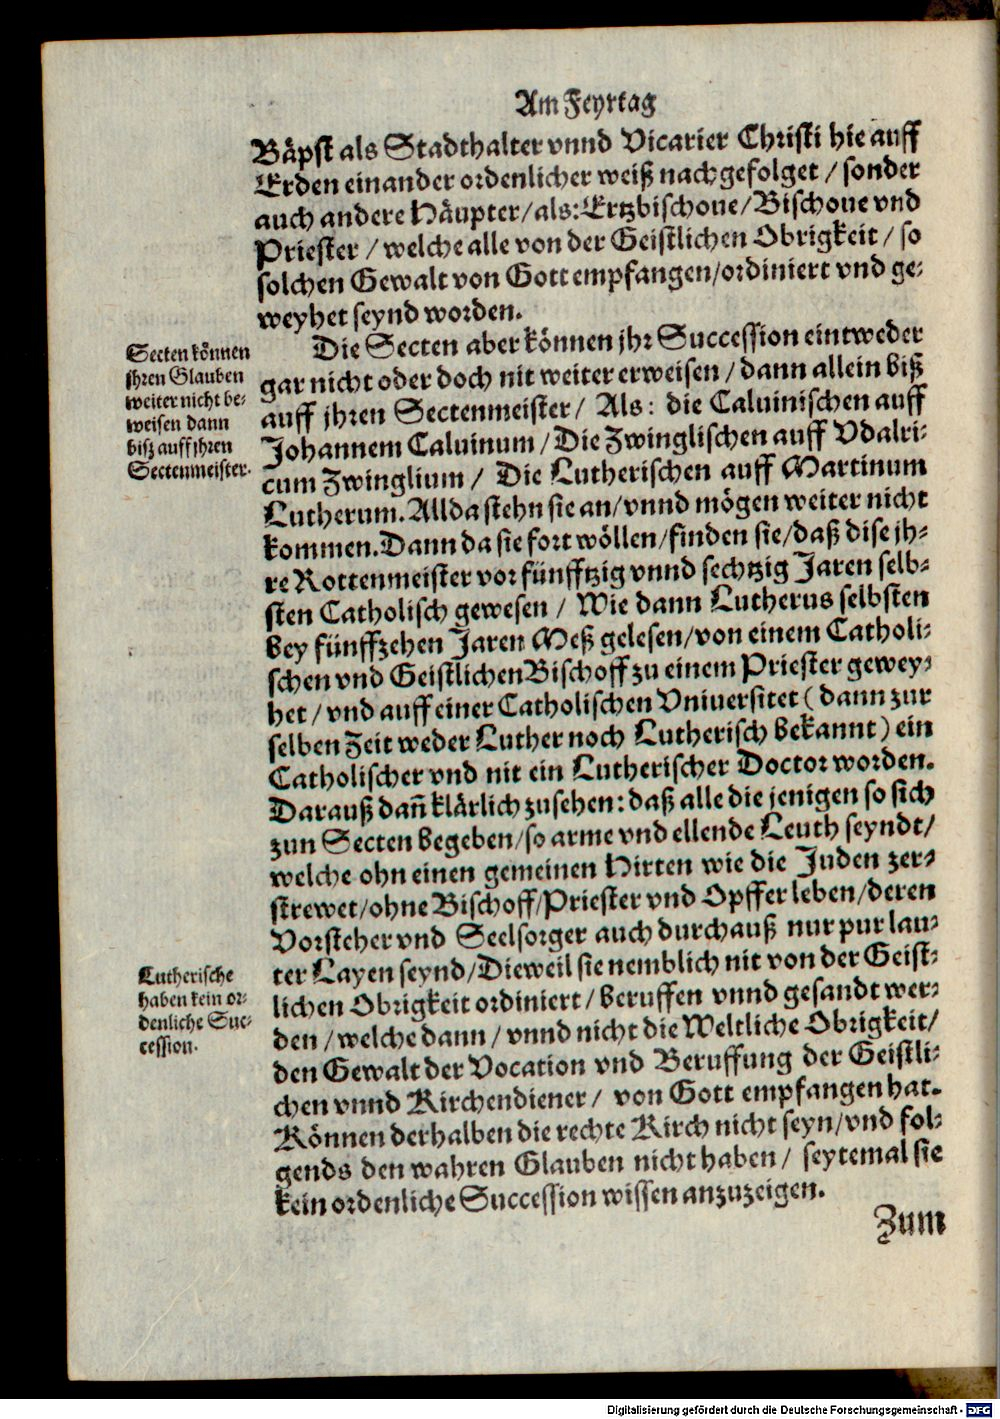 Am Feyrtag
Bäpst als Stadthalter vnnd Vicarier Christi hie auff
Erden einander ordenlicher weiß nachgefolget / sonder
auch andere Häupter / als: Ertzbischoue / Bischoue vnd
Priester / welche alle von der Geistlichen Obrigkeit / so
solchen Gewalt von Gott empfangen / ordiniert vnd ge-
weyhet seynd worden.
Die Secten aber können jhr Succession eintweder
gar nicht oder doch nit weiter erweisen / dann allein biß
auff jhren Sectenmeister / Als: die Caluinischen auff
Johannem Caluinum / Die Zwinglischen auff Vdalri-
cum Zwinglium / Die Lutherischen auff Martinum
Lutherum. Allda stehn sie an / vnnd mögen weiter nicht
kommen. Dann da sie fort wöllen / finden sie / daß dise jh-
re Rottenmeister vor fünfftzig vnnd sechtzig Jaren selb-
sten Catholisch gewesen / Wie dann Lutherus selbsten
bey fünffzehen Jaren Meß gelesen / von einem Catholi-
schen vnd Geistlichen Bischoff zu einem Priester gewey-
het / vnd auff einer Catholischen Vniuersitet ( dann zur
selben Zeit weder Luther noch Lutherisch bekannt ) ein
Catholischer vnd nit ein Lutherischer Doctor worden.
Darauß dañ klärlich zusehen: daß alle die jenigen so sich
zun Secten begeben / so arme vnd ellende Leuth seyndt /
welche ohn einen gemeinen Hirten wie die Juden zer-
strewet / ohne Bischoff / Priester vnd Opffer leben / deren
Vorsteher vnd Seelsorger auch durchauß nur pur lau-
ter Layen seynd / Dieweil sie nemblich nit von der Geist-
lichen Obrigkeit ordiniert / beruffen vnnd gesandt wer-
den / welche dann / vnnd nicht die Weltliche Obrigkeit /
den Gewalt der Vocation vnd Beruffung der Geistli-
chen vnnd Kirchendiener / von Gott empfangen hat.
Können derhalben die rechte Kirch nicht seyn / vnd fol-
gends den wahren Glauben nicht haben / seytemal sie
kein ordenliche Succession wissen anzuzeigen.
Zum
Secten können
jhren Glauben
weiter nicht be-
weisen dann
biß auff jhren
Sectenmeister.
Lutherische
haben kein or-
denliche Suc-
cession.
Digitalisierung gefördert durch die Deutsche Forschungsgemeinschaft - DFG